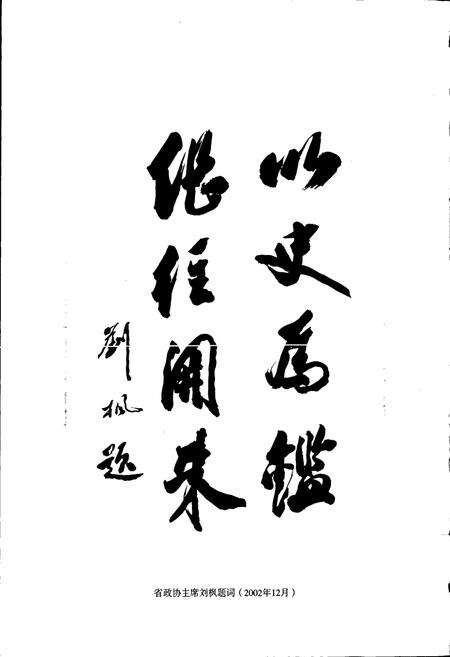 以史为鑑
继往开来
劉枫题
省政协主席刘枫题词（2002年12月）